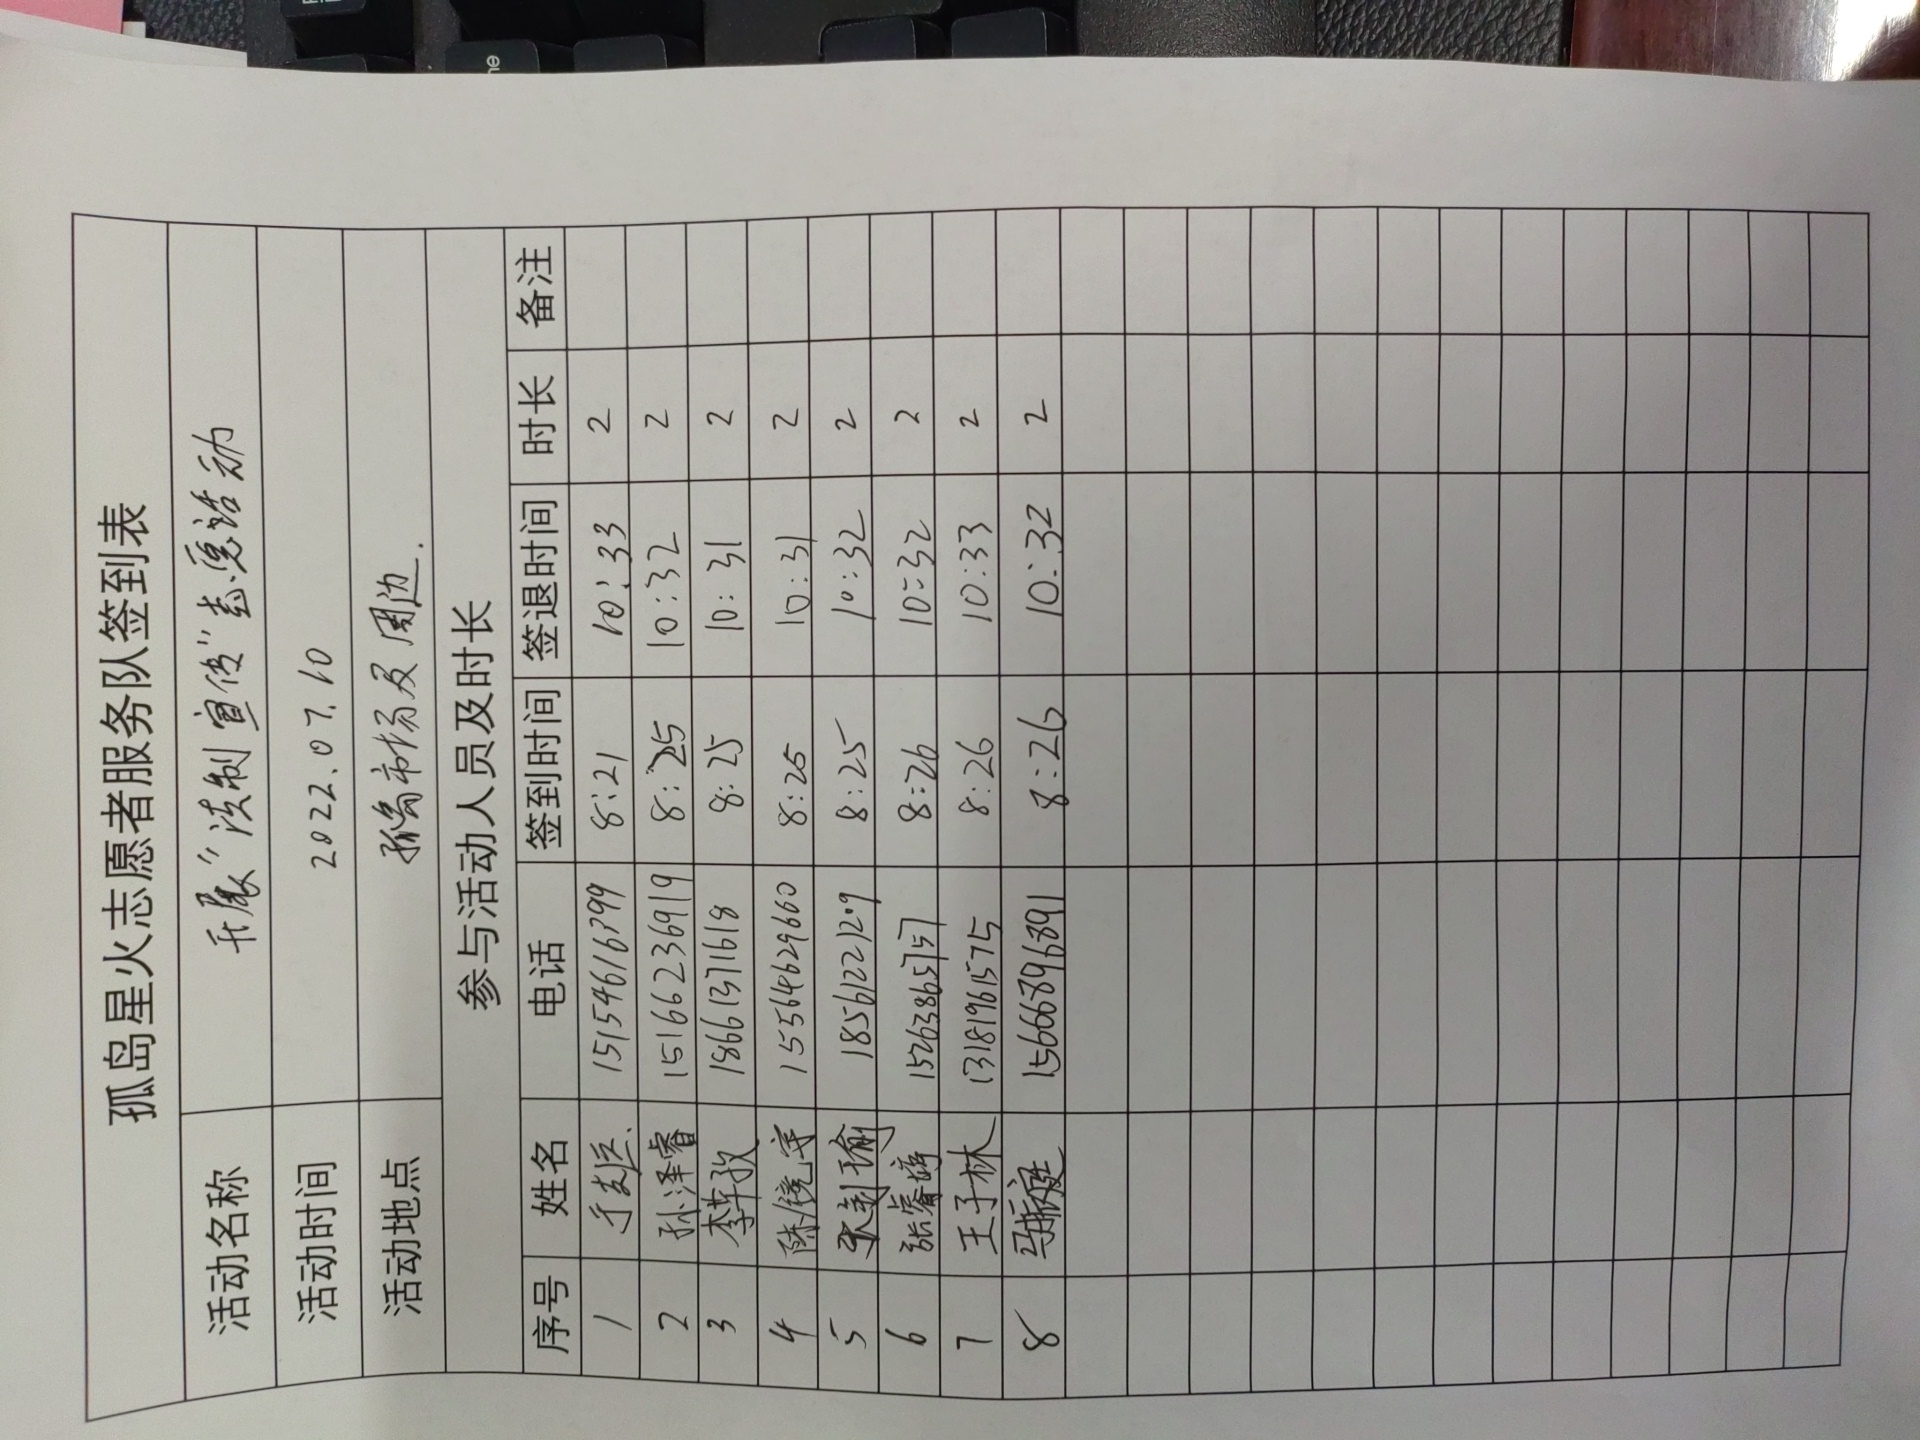 孤岛星火志愿者服务队签到表
活动名称 开展"法制宣传"志愿活动
活动时间 2022.07.10
活动地点 孤岛市场及周边.
参与活动人员及时长
序号 姓名 电话 签到时间 签退时间 时长 备注
1 15154616399 8:21 10:33 2
2 孙泽睿 15166236919 8:25 10:32 2
3 李孜 18661371618 8:25 10:31 2
4 陈镜宇 15564629660 8:25 10:31 2
5 18561221209 8:25 10:32 2
6 张睿婷 15263865757 8:26 10:32 2
7 王子林 13181961575 8:26 10:33 2
8 马振庭 15666896891 8:26 10:32 2